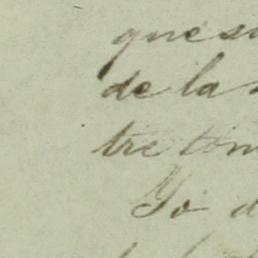 que su
de la
tre tom
Yo d